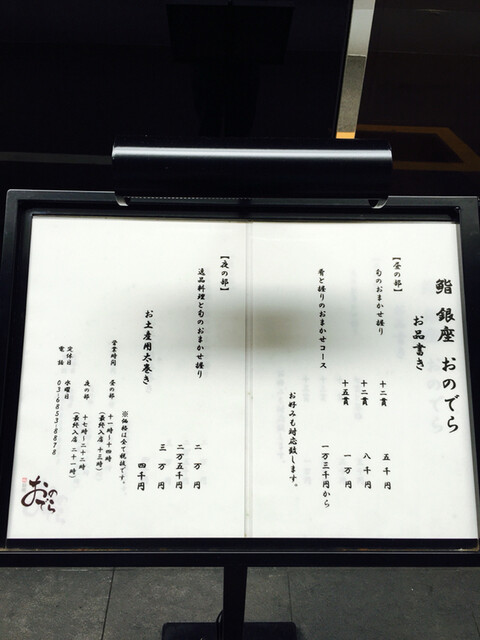 鮨 銀座 おのでら
お品書き
【昼の部】
旬のおまかせ握り 十二貫 五千円
十二貫 八千円
十五貫 一万円
肴と握りのおまかせコース 一万三千円から
お好みも対応致します。
【夜の部】
逸品料理と旬のおまかせ握り 二万円
二万五千円
三万円
お土産用太巻き 四千円
※価格は全て税抜です。
営業時間 昼の部 十一時〜十四時
(最終入店 十三時)
夜の部 十七時〜二十二時
(最終入店 二十一時)
定休日 水曜日
電話 03-6853-8878
おのでら